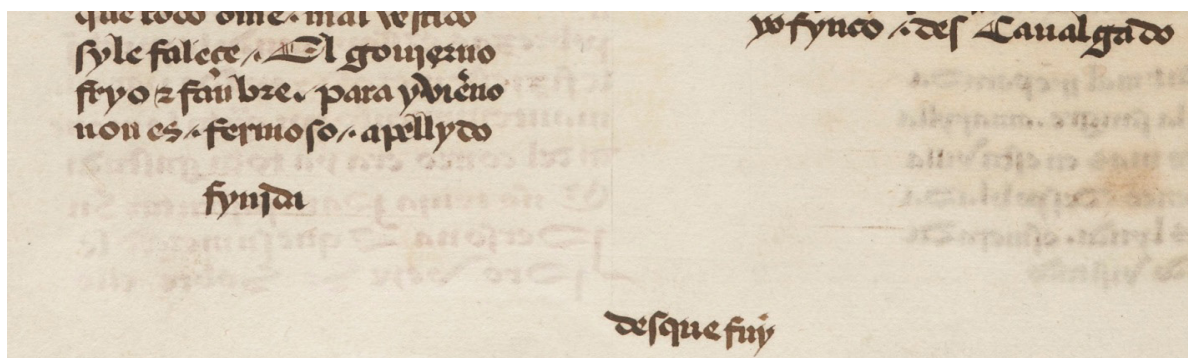 que todo ome · mal vestido
syle falece /. El gouierno
fryo & fanbre . para yvierno
non es /. fermoso /. apellydo
fynida
yo fynco /. des Caualgado
desque fuy